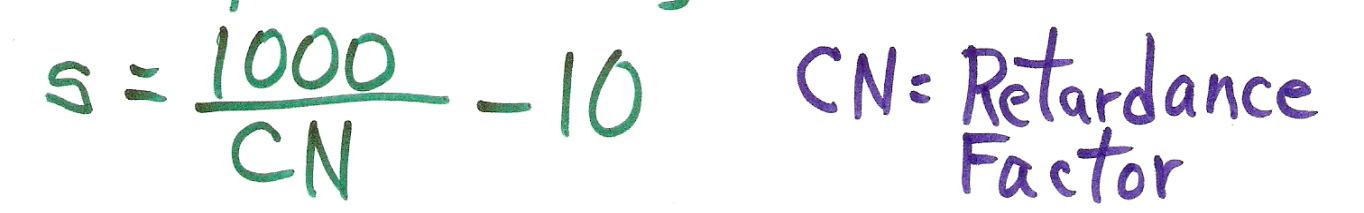 S = 1000/CN - 10
CN = Retardance
Factor